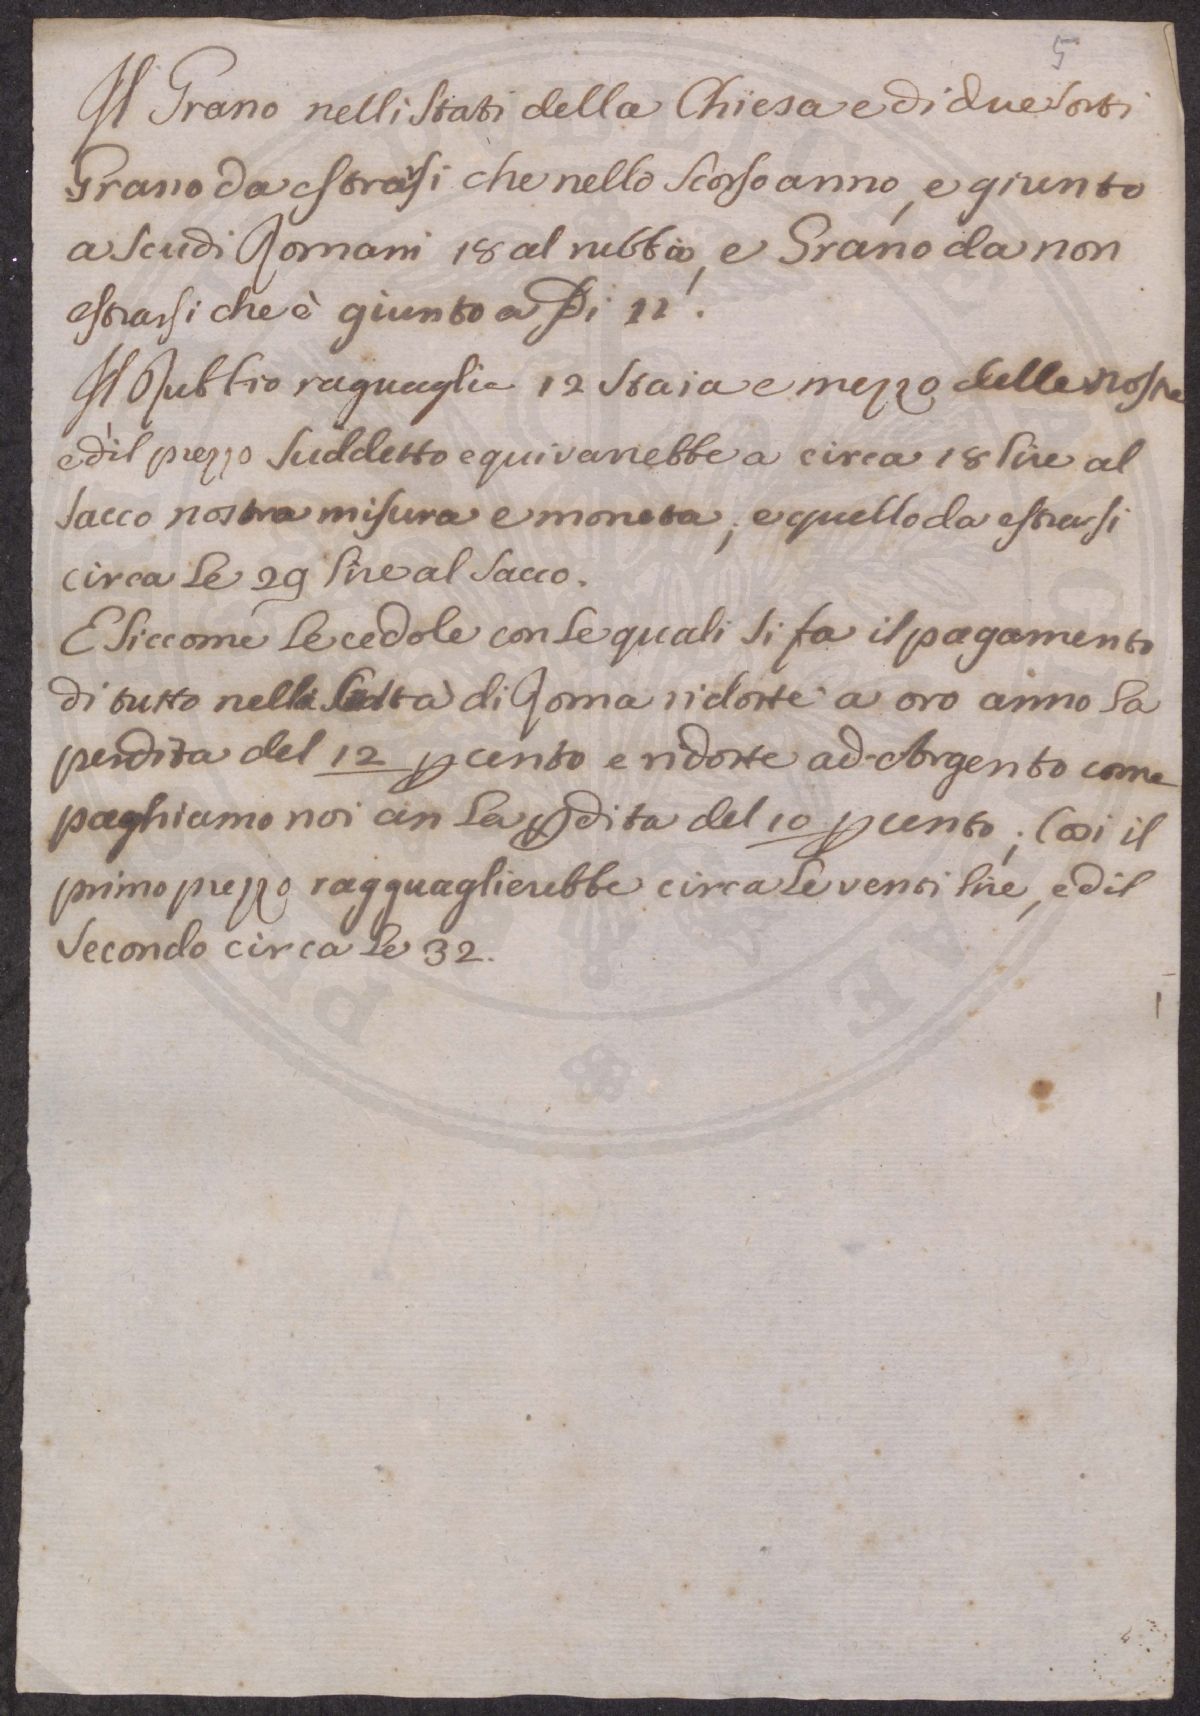 5
Il Grano nelli Stati della Chiesa e di due Sorti
Grano da estrarsi che nello scorso anno, e giunto
a Scudi Romani 18 al rubbio, e Grano da non
estrarsi che è giunto a 11.
Il Rubbio raguaglia 12 Staia e mezzo delle nostre
ed il prezzo Suddetto equivarrebbe a circa 18 lire al
Sacco nostra misura e moneta, e quello da estrarsi
circa Le 29 lire al Sacco.
E Siccome Le cedole con Le quali si fa il pagamento
di tutto nella di Roma ridotte a oro anno La
perdita del 12 p cento e ridotte ad Argento come
paghiamo noi an La pdita del 10 p cento; Così il
primo prezzo ragguaglierebbe circa Le venti lire, ed il
Secondo circa Le 32.